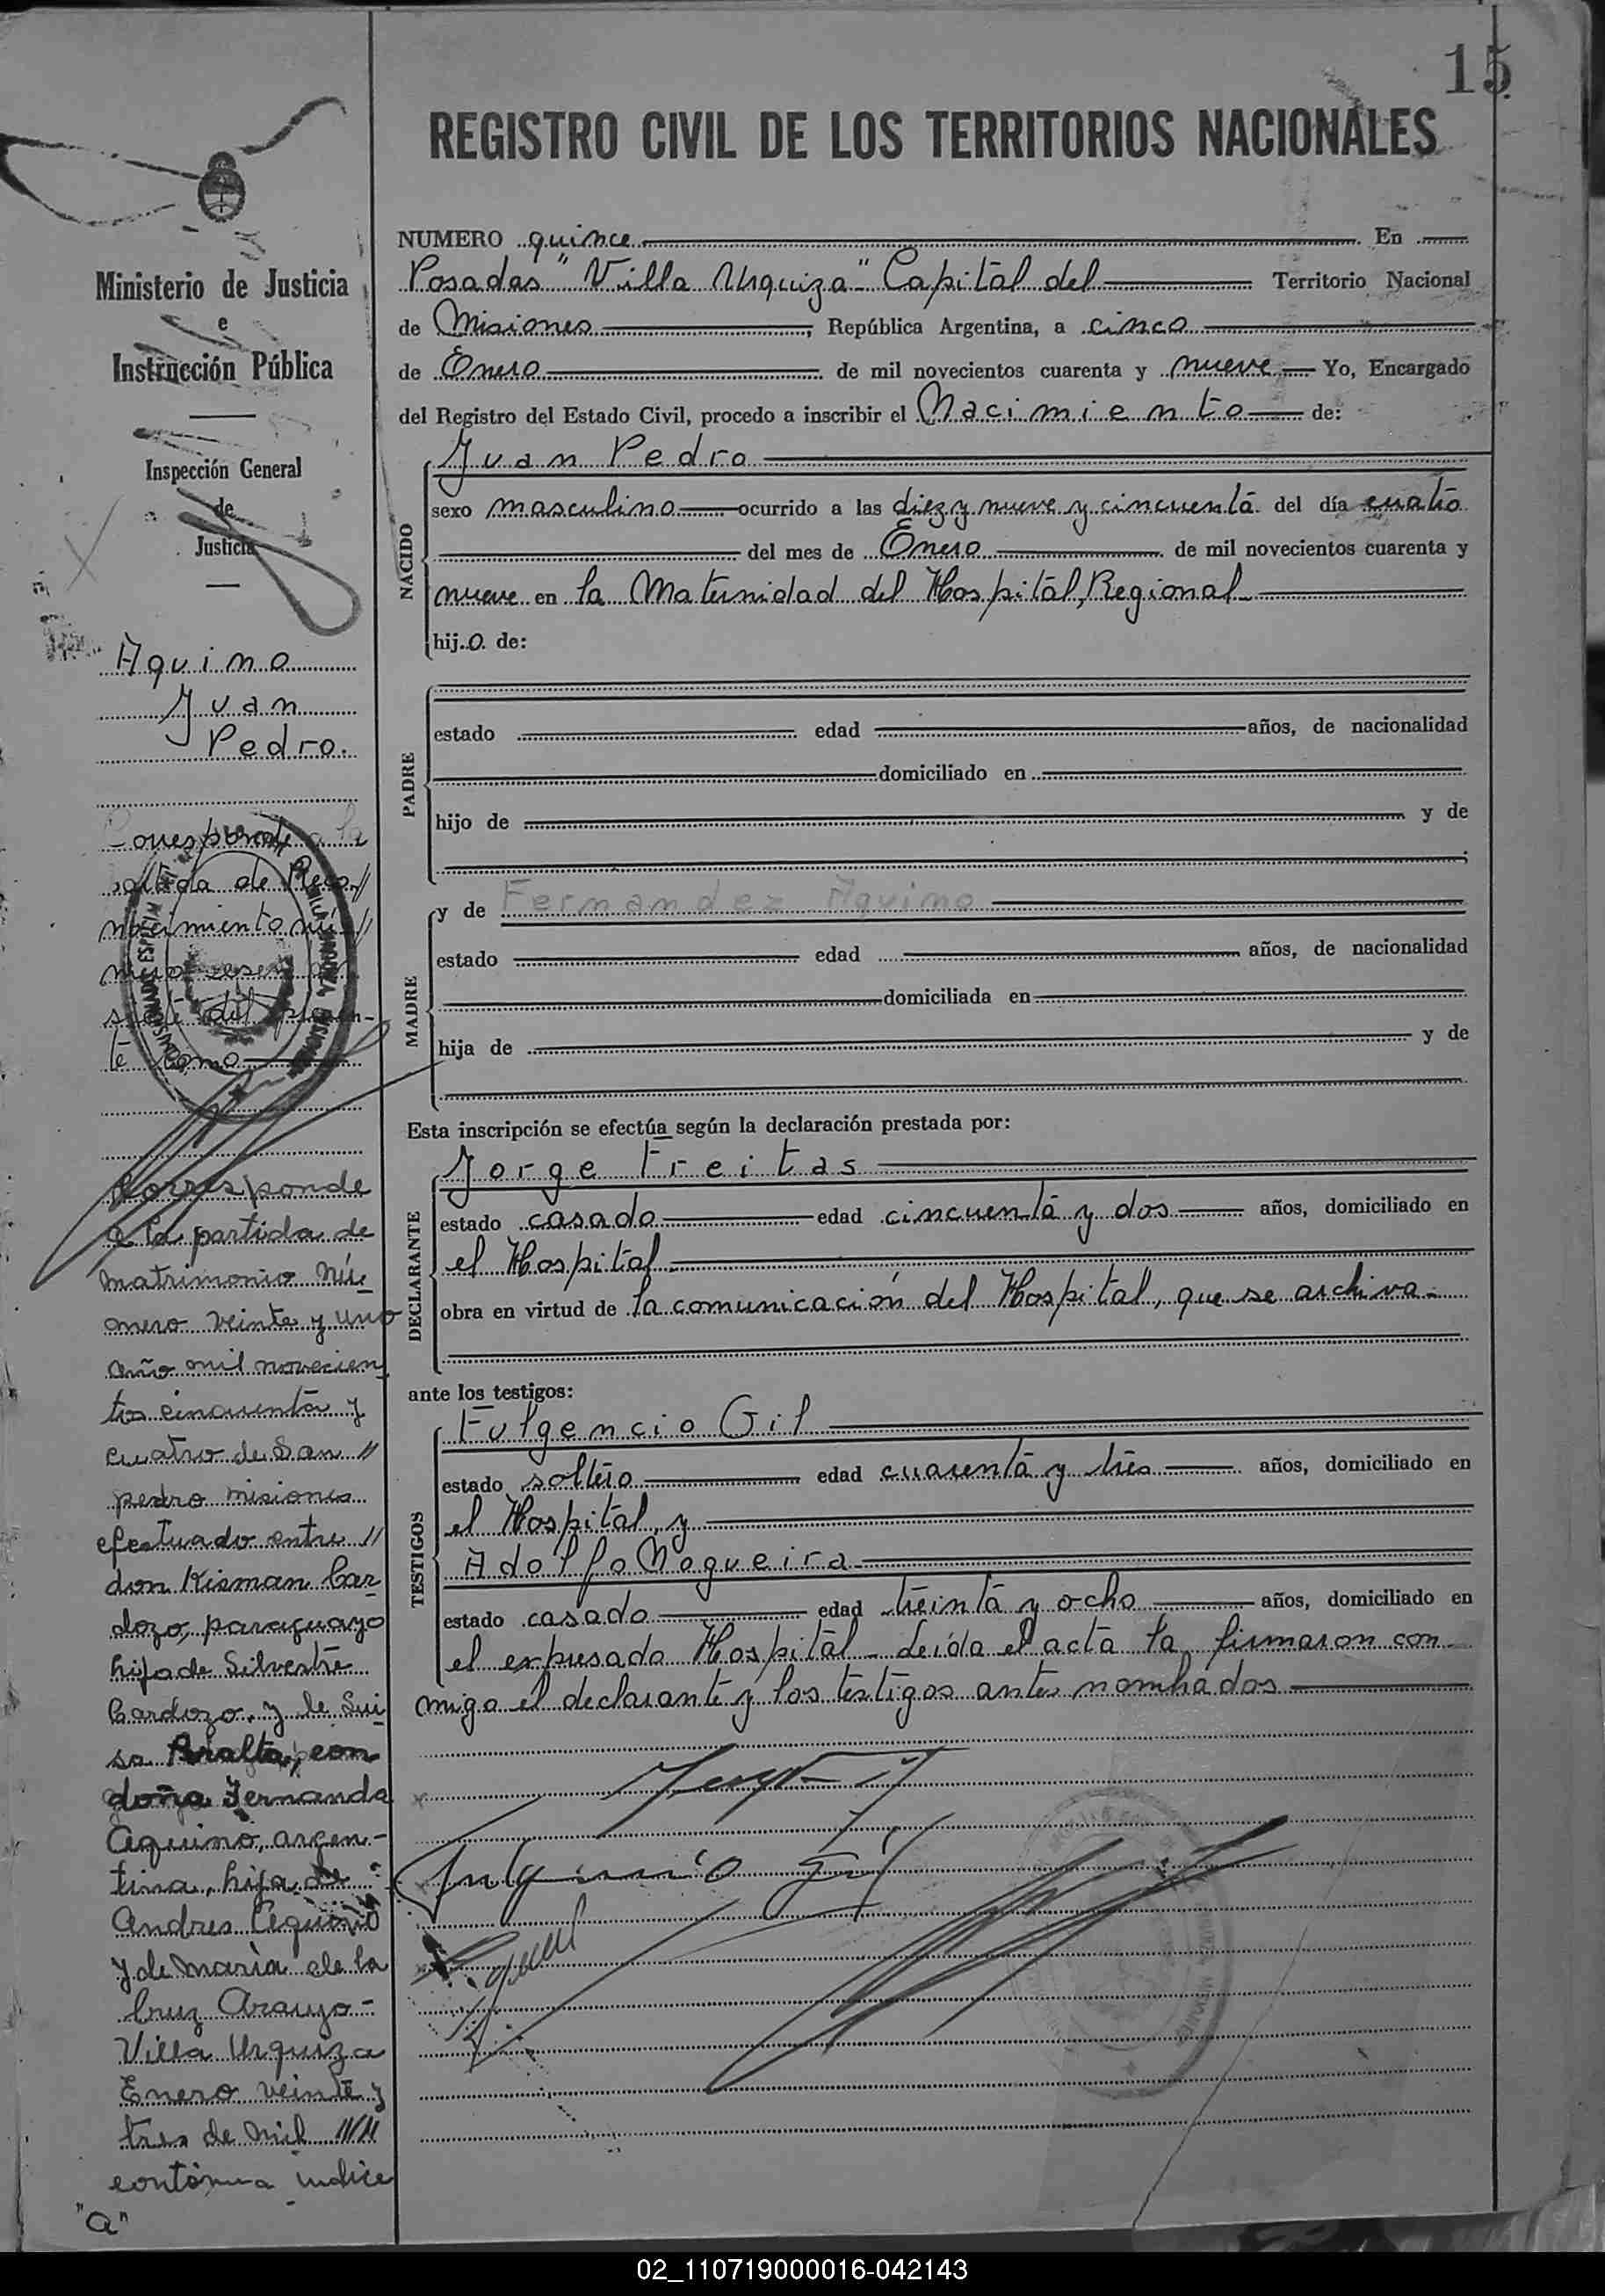 15
REGISTRO CIVIL DE LOS TERRITORIOS NACIONALES
NUMERO quince En
Posadas "Villa Urquiza" Capital del Territorio Nacional
de Misiones, República Argentina, a cinco
de Enero de mil novecientos cuarenta y nueve Yo, Encargado
del Registro del Estado Civil, procedo a inscribir el Nacimiento de:
NACIDO
Juan Pedro
sexo masculino ocurrido a las diez y nueve y cincuenta del día cuatro
del mes de Enero de mil novecientos cuarenta y
nueve en la Maternidad del Hospital, Regional
hijo de:
PADRE
estado edad años, de nacionalidad
domiciliado en
hijo de y de
MADRE
y de Fernandez Aquino
estado edad años, de nacionalidad
domiciliada en
hija de y de
Esta inscripción se efectúa según la declaración prestada por:
DECLARANTE
Jorge Freitas
estado casado edad cincuenta y dos años, domiciliado en
el Hospital
obra en virtud de la comunicación del Hospital, que se archiva
ante los testigos:
TESTIGOS
Fulgencio Gil
estado soltero edad cuarenta y tres años, domiciliado en
el Hospital, y
Adolfo Nogueira
estado casado edad treinta y ocho años, domiciliado en
el expresado Hospital - Leída el acta la firmaron con
migo el declarante y los testigos antes nombrados
Fulgencio Gil
Ministerio de Justicia
e
Instrucción Pública
Inspección General
de
Justicia
Aquino
Juan
Pedro.
Corresponde a la
partida de Reco//
nocimiento nú//
mero sesenta y
siete del presen-
te tomo
Corresponde
a la partida de
matrimonio nú-
mero veinte y uno
año mil novecien
tos cincuenta y
cuatro de San //
pedro misiones
efectuado entre //
don Kisman Car
dozo, paraguayo
hijo de Silvestre
Cardozo, y de Lui
sa Peralta, con
doña Fernanda
Aquino, argen-
tina, hija de
Andres Aquino
y de maria de la
Cruz Araujo-
Villa Urquiza
Enero veinte y
tres de mil ////
continua indice
"a"
02_110719000016-042143